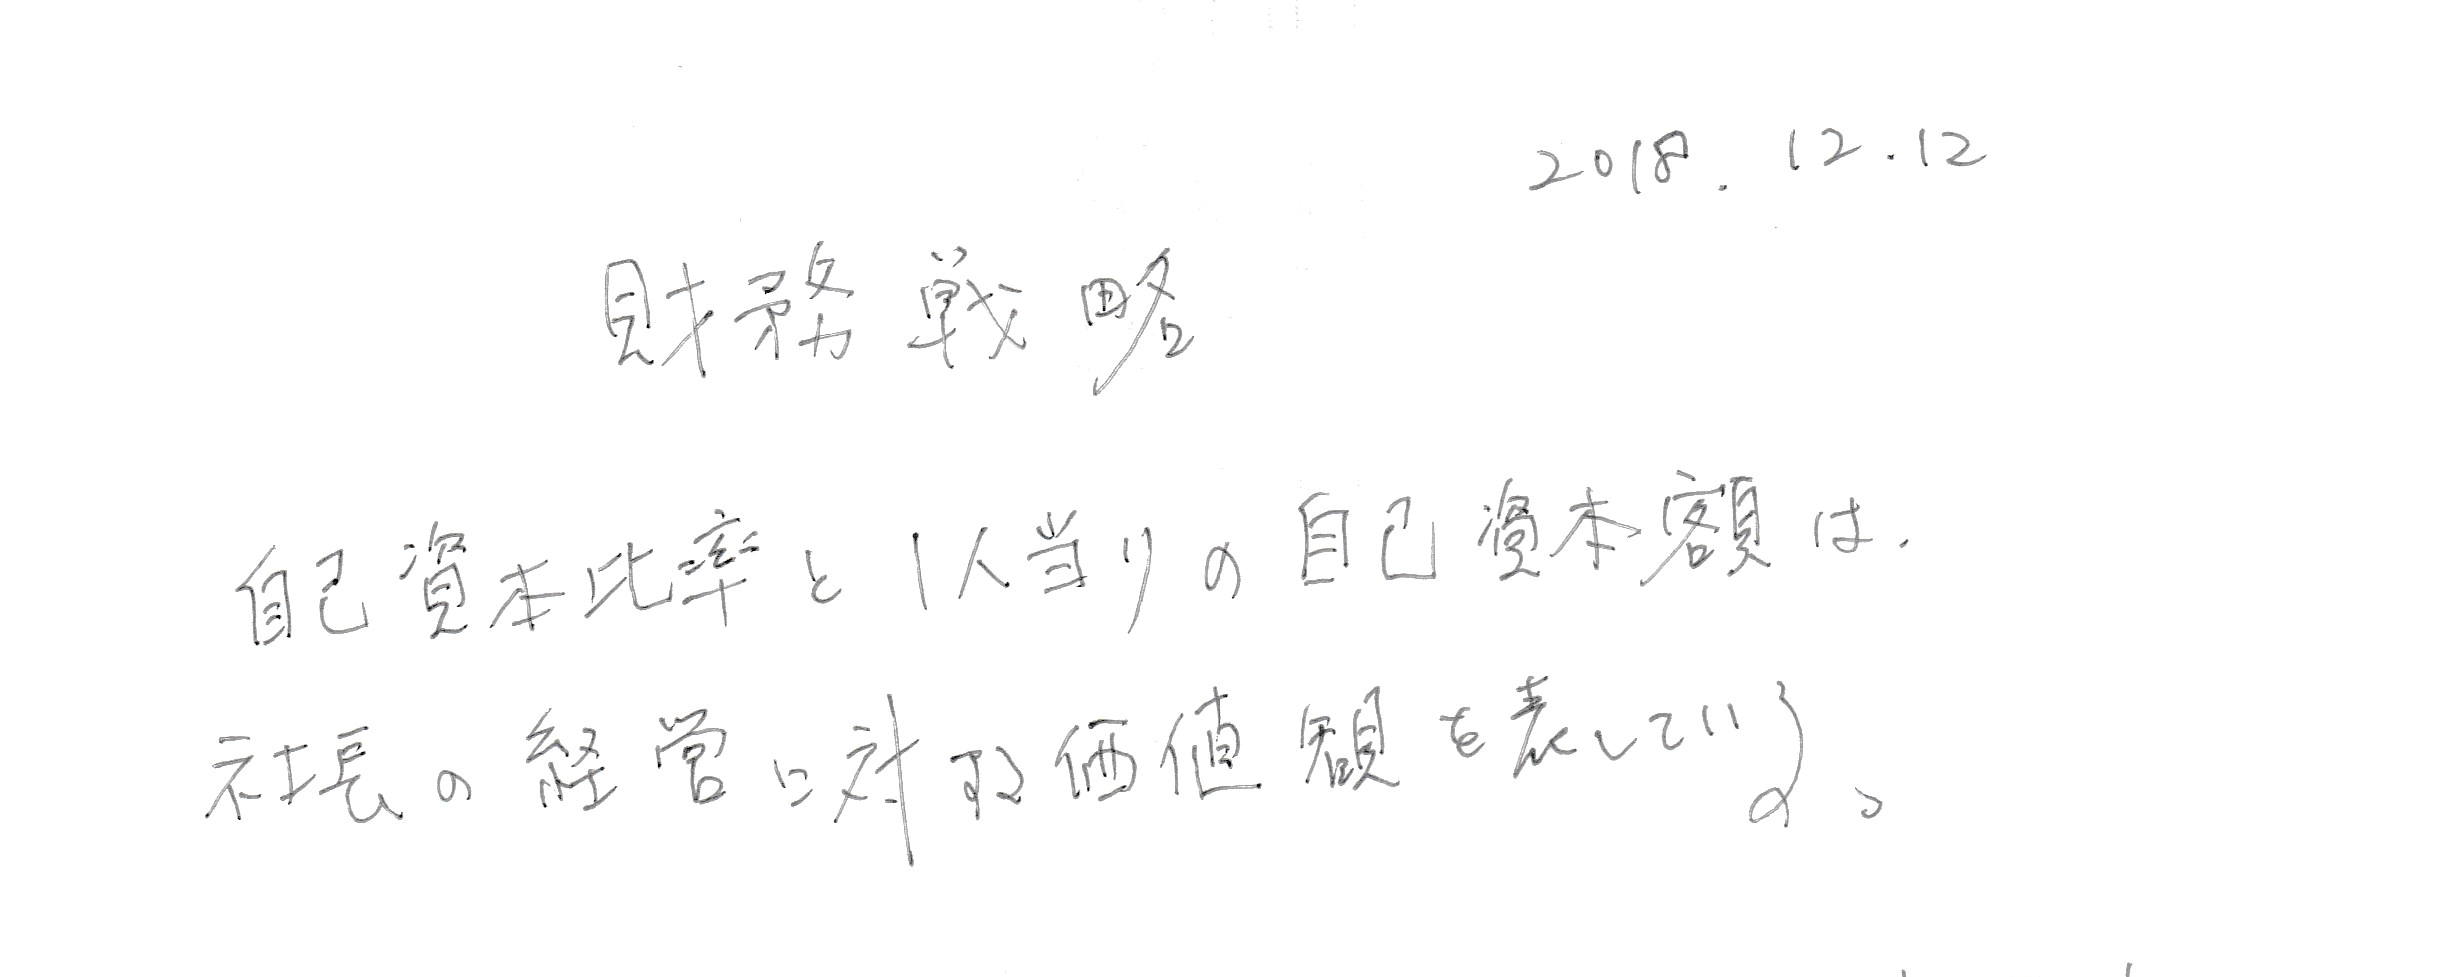 2018.12.12
財務戦略
自己資本比率と1人当りの自己資本額は、
社長の経営に対する価値観を表している。